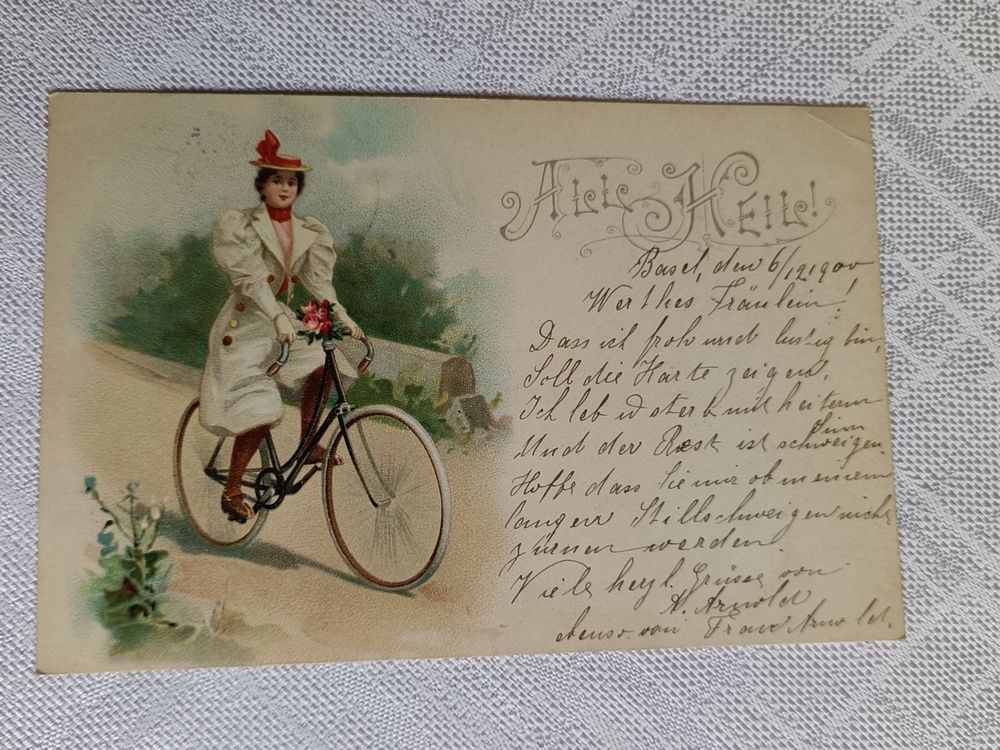 ALL HEIL!
Basel, den 6/12 1900
Werthes Fräulein!
Dass ich froh und lustig bin,
Soll die Karte zeigen,
Ich leb u sterb mit heiterm
Sinn
Und der Rest ist schweigen
Hoffe dass Sie mir ob meinem
langen Stillschweigen nicht
zürnen werden.
Viele herzl. Grüsse von
A. Arnold
ebenso von Frau Arnold.